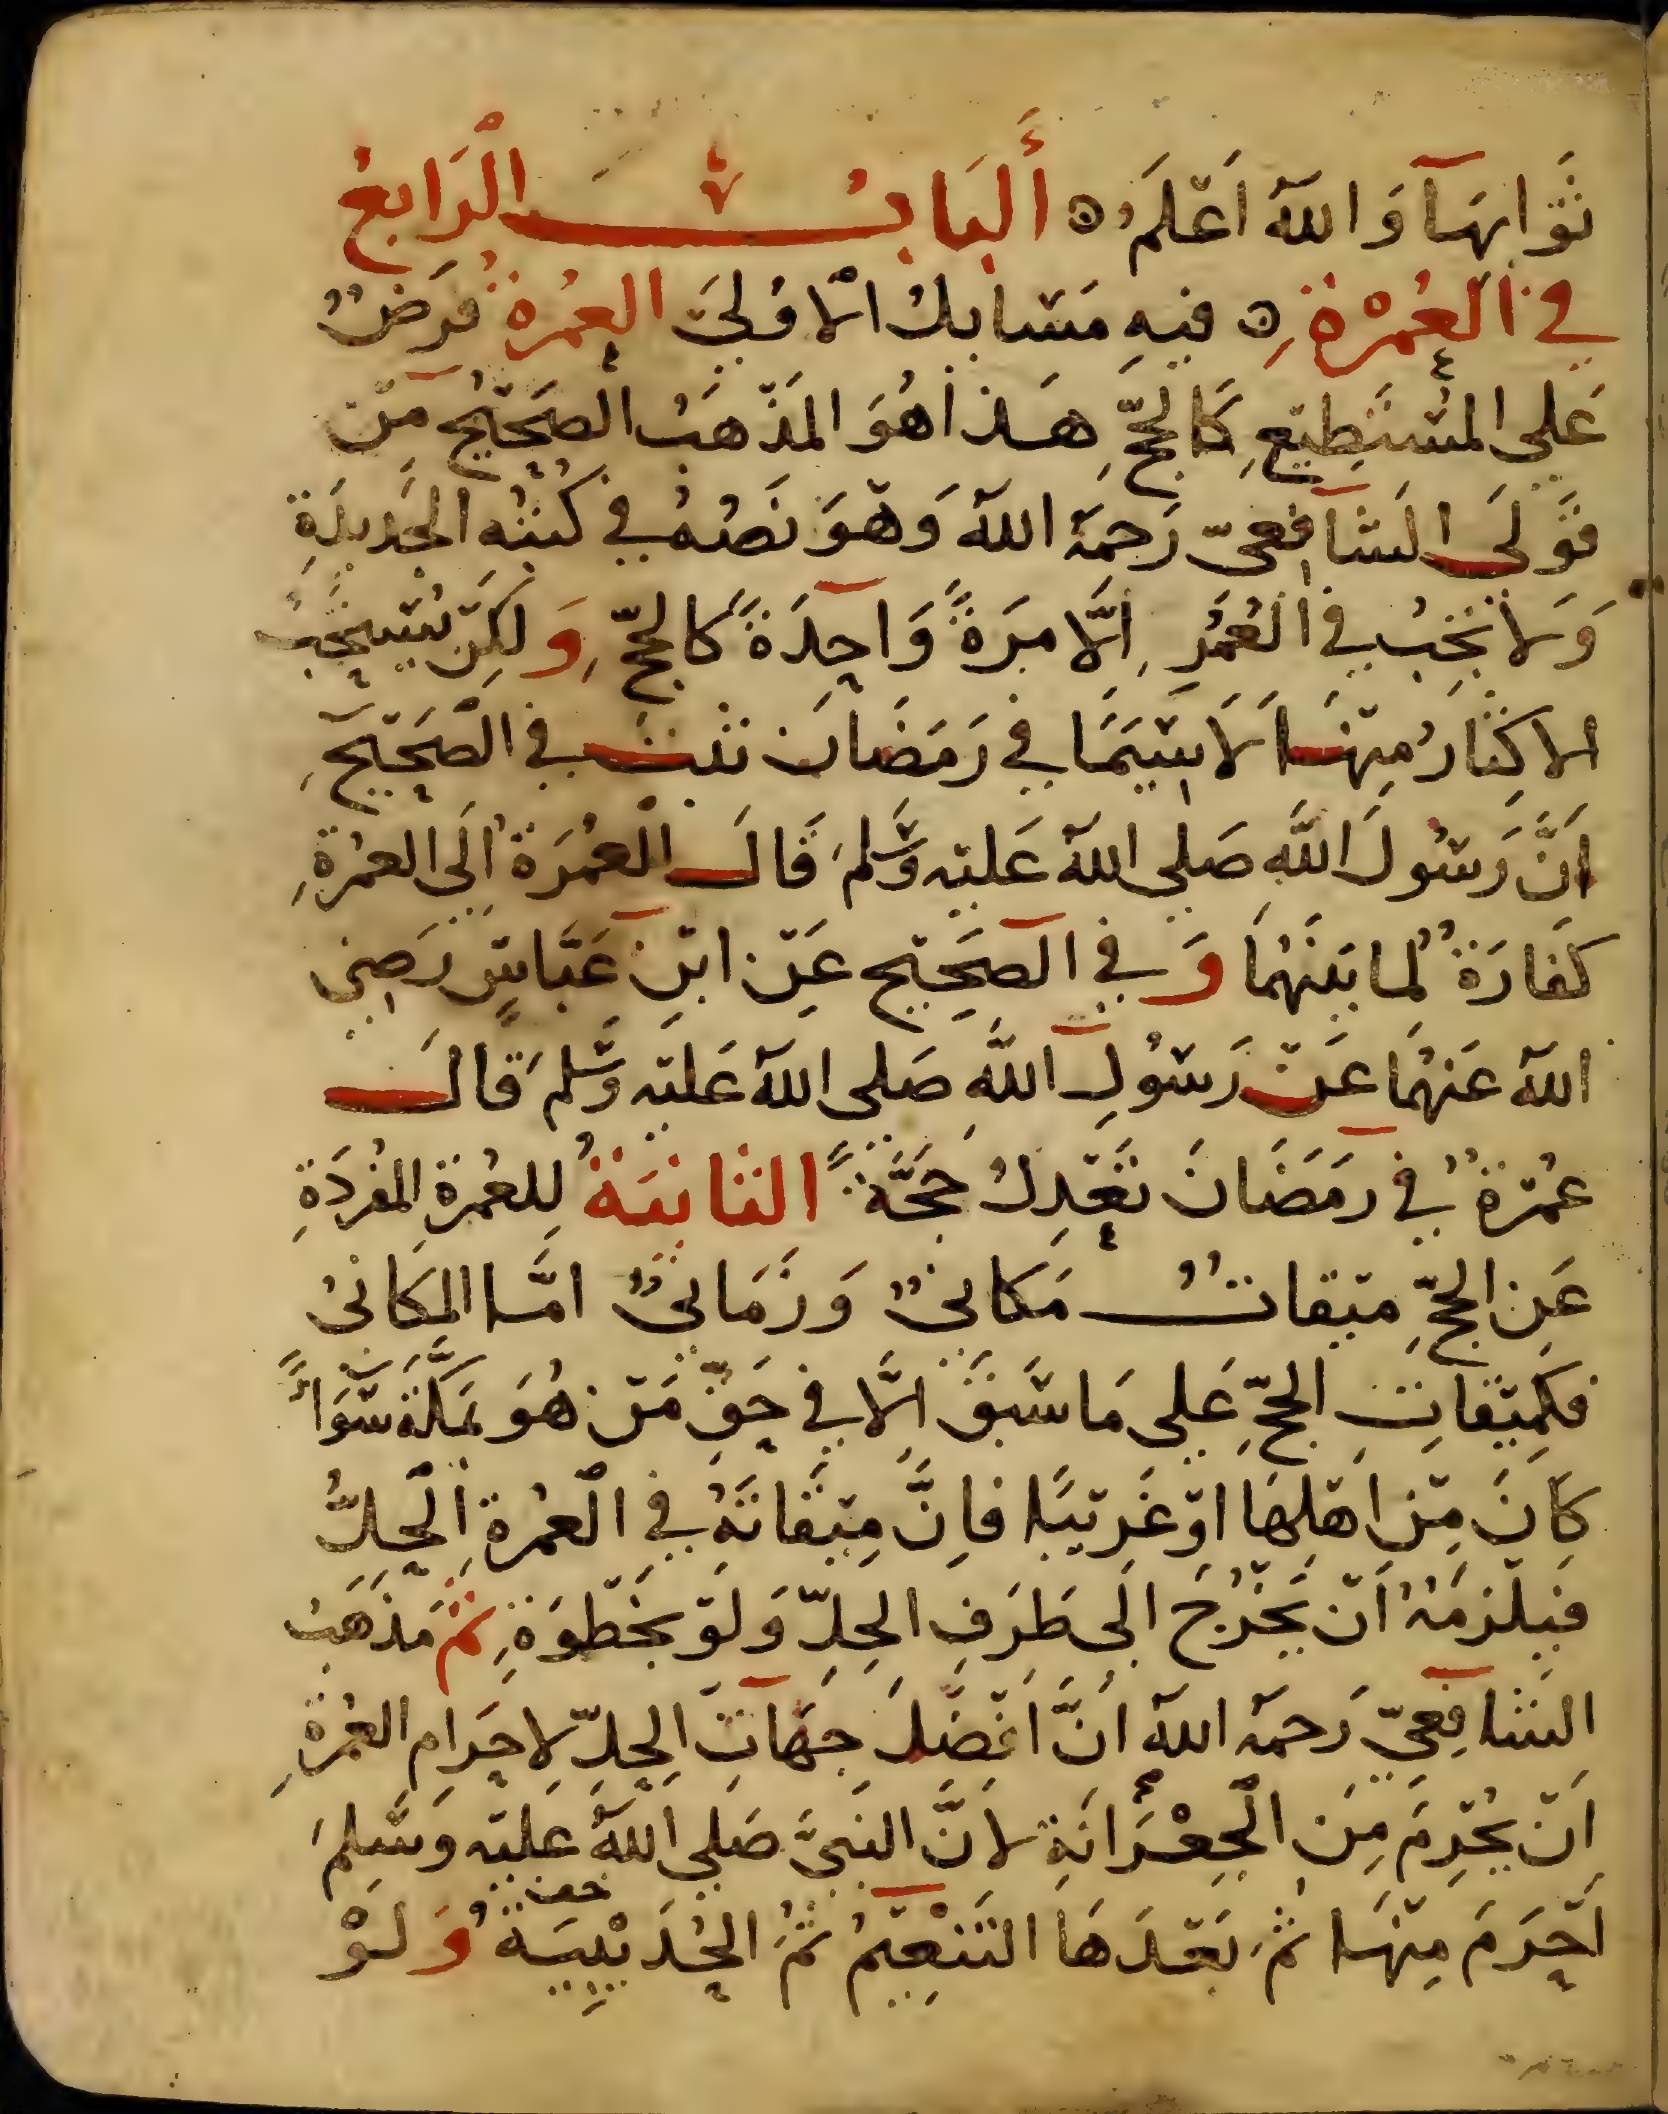 ثَوَابِهَا وَاللهُ اَعْلَمُ ۞ أَلْبَابُ الْرَّابِعُ
فِي الْعُمْرَةِ ۞ فيهِ مَسَايلُ الْاوُلَىَ العُمْرَةُ فَرَضٌ
عَلى المُسْتَطِيْعِ كَالحَجِّ هَذا هُوَ المَذْهَبُ الصَحَيْحُ مَنْ
قَوْلَى الشَافِعيّ رَحِمَهُ اللهُ وَهْوَ نَصُهُ في كُتبُه الجَديدَةِ
وَلَا تَجِبُ في الْعُمُرِ اِلَّا مَرَةً وَاحِدَةً كَالحَجِّ وَلكِنْ تُسْتَحَبُ
الاكِثَارُ مِنْهَا لَاسِيَمَا في رَمَضَانَ ثبتَ في الصَحَيْحِ
اَنَّ رَسُولَ اللَّهِ صَلى اللهُ عَليْهِ وَسَّلمَ قَالَ العُمْرَةُ اِلَى العُمْرَةِ
كَفارَةٌ لما بَينَهُمَا وَفي الصَحِيْح عَنْ ابْنِ عَبَّاسٍ رَضى
اللهُ عَنهُمَا عَنْ رَسُوْلِ اللَّهِ صَلى اللهُ عَليْهِ وَسَّلمَ قَالَ
عُمْرَةٌ في رَمَضَانَ تَعْدِلُ حَجَّةً الثَانيَةُ لِلعُمْرَةِ المُفْرَدَةِ
عَنِ الحَجِّ ميْقاتٌ مَكانىٌ وَزَمَانىٌ امَّا المكَانىُ
فكَمِيْقاتِ الحَجِّ عَلى مَا سَبَقَ اِلَّا في حَقِّ مَنْ هُوَ بمَكَّةَ سَوَاءً
كَانَ مِنْ اَهْلِهَا اوْ غَرِيْبًا فاِنَّ مِيْقَاتَهُ في الْعُمْرَةِ الْحِلُّ
فيَلْزَمَهُ اَنْ يَخْرُجَ اِلَى طَرَفِ الحِلِّ وَلَوْ بِخَطْوَةٍ ثُمَ مَذهَبُ
الشَافِعِيّ رَحمَهُ اللهُ اَنَّ اَفْضَلَ جِهَاتِ الِحِلِّ لاحِرَامِ العُمْرَةِ
اَنْ يُحْرِمَ مِنَ الْجِعْرَانَةِ لاَنَّ النَبىَّ صَلى اللهُ عَليْهِ وسَّلمَ
اَحْرَمَ مِنْهَا ثُمَ بَعْدَهَا التَنْعِيْمُ ثُمَ الحُدَيْبِيَةُ وَلَوْ